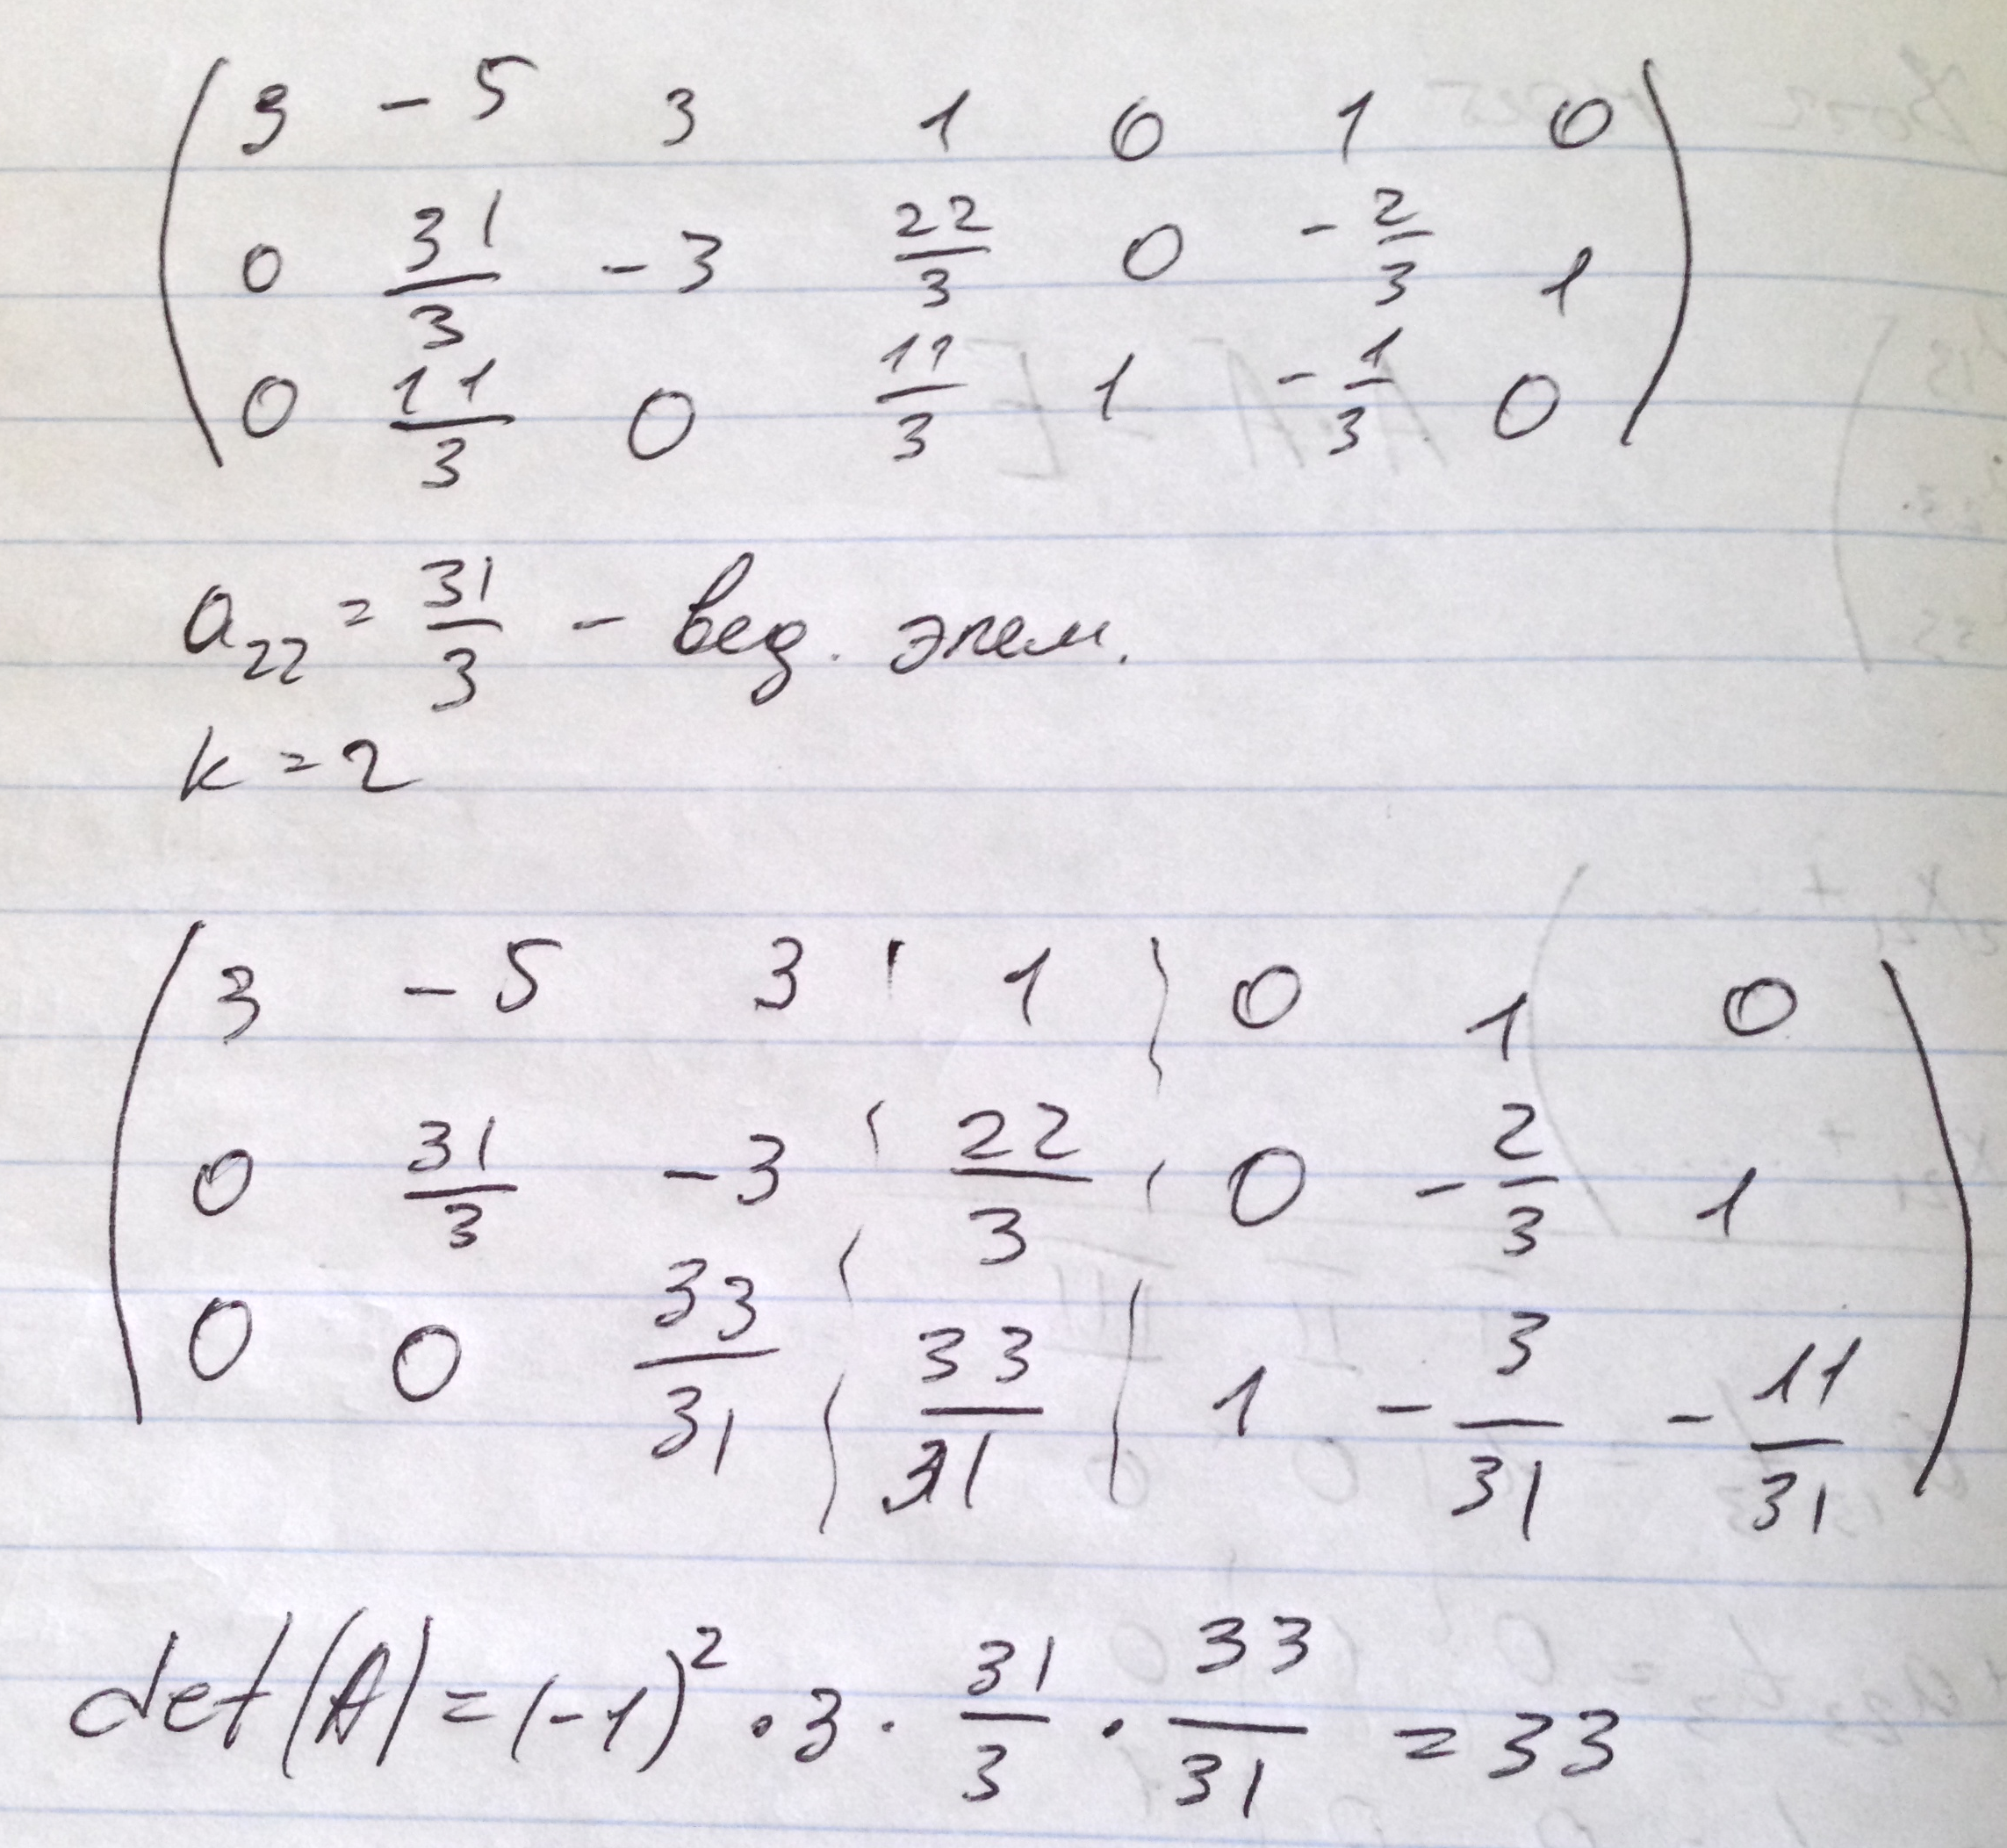 3 -5 3 1 0 1 0
0 31/3 -3 22/3 0 -2/3 1
0 11/3 0 11/3 1 -1/3 0
a₂₂ = 31/3 - вед. элем.
k = 2
3 -5 3 ¦ 1 ¦ 0 1 0
0 31/3 -3 ¦ 22/3 ¦ 0 -2/3 1
0 0 33/31 ¦ 33/31 ¦ 1 -3/31 -11/31
det(A) = (-1)² · 3 · 31/3 · 33/31 = 33